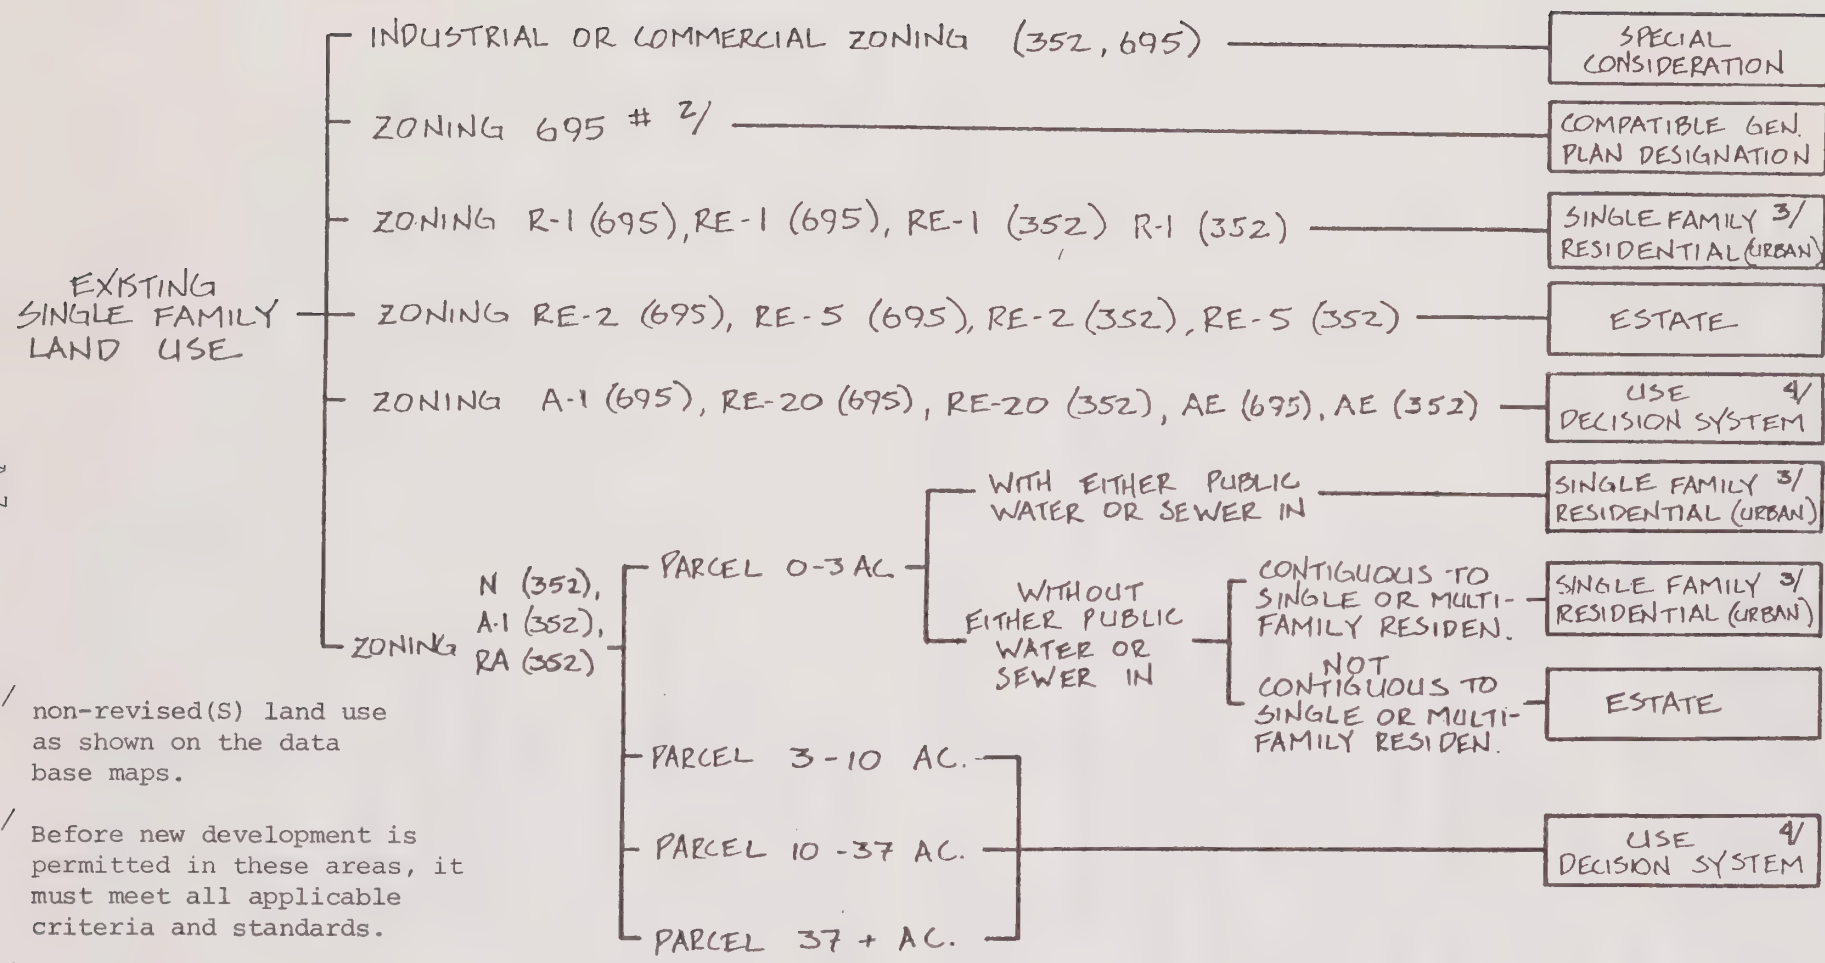 INDUSTRIAL OR COMMERCIAL ZONING (352, 695)
SPECIAL
CONSIDERATION
ZONING 695 # 2/
COMPATIBLE GEN.
PLAN DESIGNATION
ZONING R-1 (695), RE-1 (695), RE-1 (352) R-1 (352)
SINGLE FAMILY 3/
RESIDENTIAL (URBAN)
EXISTING
SINGLE FAMILY
LAND USE
ZONING RE-2 (695), RE-5 (695), RE-2 (352), RE-5 (352)
ESTATE
ZONING A-1 (695), RE-20 (695), RE-20 (352), AE (695), AE (352)
USE 4/
DECISION SYSTEM
ZONING
N (352),
A-1 (352),
RA (352)
PARCEL 0-3 AC.
WITH EITHER PUBLIC
WATER OR SEWER IN
SINGLE FAMILY 3/
RESIDENTIAL (URBAN)
WITHOUT
EITHER PUBLIC
WATER OR
SEWER IN
CONTIGUOUS TO
SINGLE OR MULTI-
FAMILY RESIDEN.
SINGLE FAMILY 3/
RESIDENTIAL (URBAN)
NOT
CONTIGUOUS TO
SINGLE OR MULTI-
FAMILY RESIDEN.
ESTATE
PARCEL 3-10 AC.
PARCEL 10-37 AC.
PARCEL 37 + AC.
USE 4/
DECISION SYSTEM
/ non-revised(S) land use
as shown on the data
base maps.
/ Before new development is
permitted in these areas, it
must meet all applicable
criteria and standards.